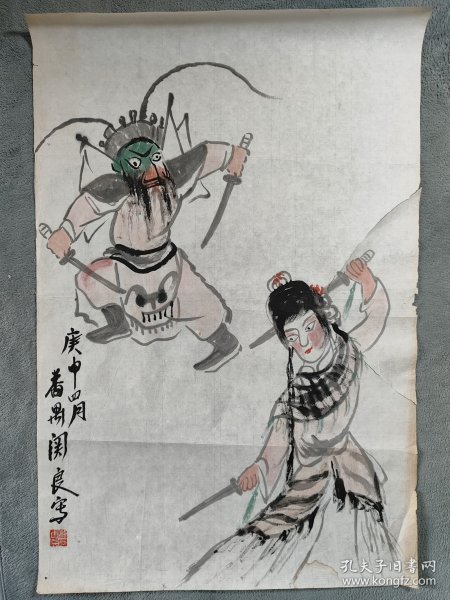 庚申四月
番禺关良写
孔夫子旧书网
www.kongfz.com